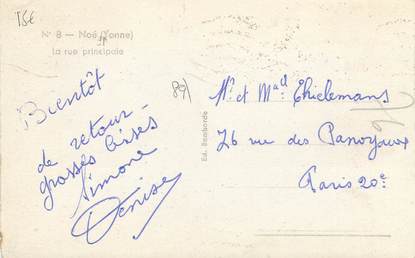 15€
N° 8 - Noé (Yonne)
La rue principale
Bientôt
de retour -
grosses bises
Simone
Denise
89/
Ed. Bomborde
Mr. et Mad. Thielemans
76 rue des Panoyaux
Paris 20e.